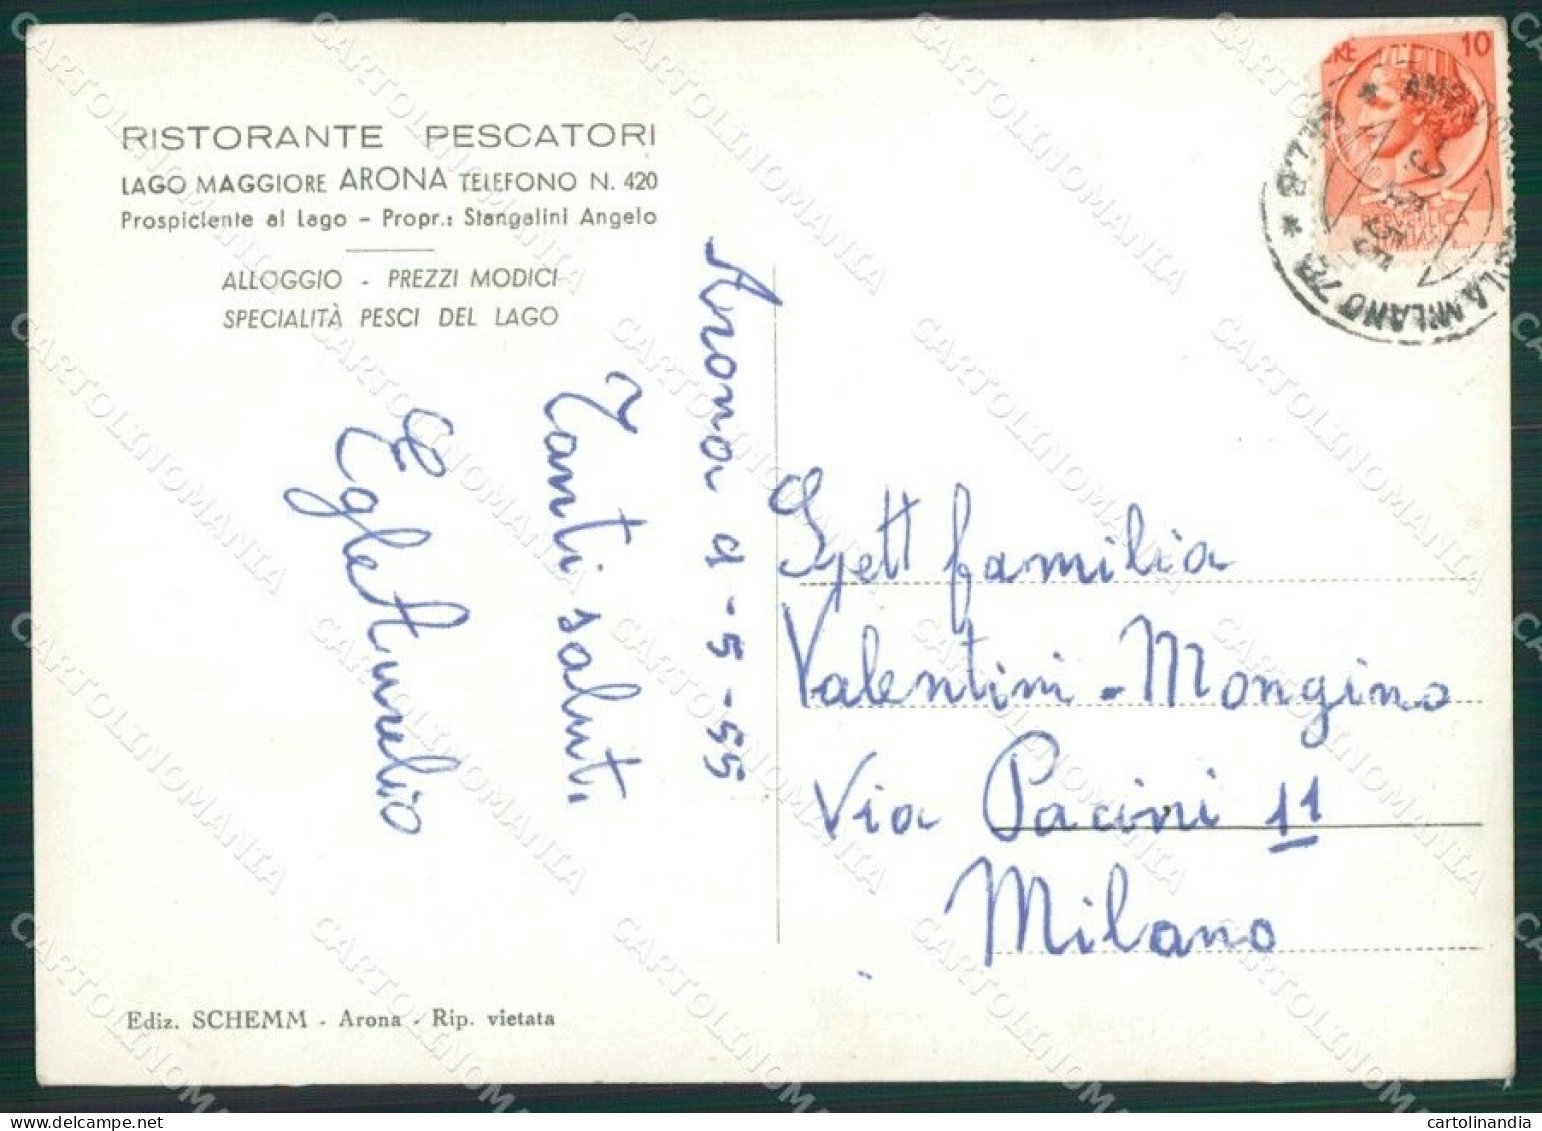 RISTORANTE PESCATORI
LAGO MAGGIORE ARONA TELEFONO N. 420
Prospiciente al Lago - Propr.: Stangalini Angelo
ALLOGGIO - PREZZI MODICI
SPECIALITÀ PESCI DEL LAGO
Arona 9-5-55
Tanti saluti
Egle Aurelio
Ediz. SCHEMM - Arona - Rip. vietata
10
MILANO
Gett famiglia
Valentini - Mongino
Via Pacini 11
Milano
CARTOLINOMANIA
cartolinandia